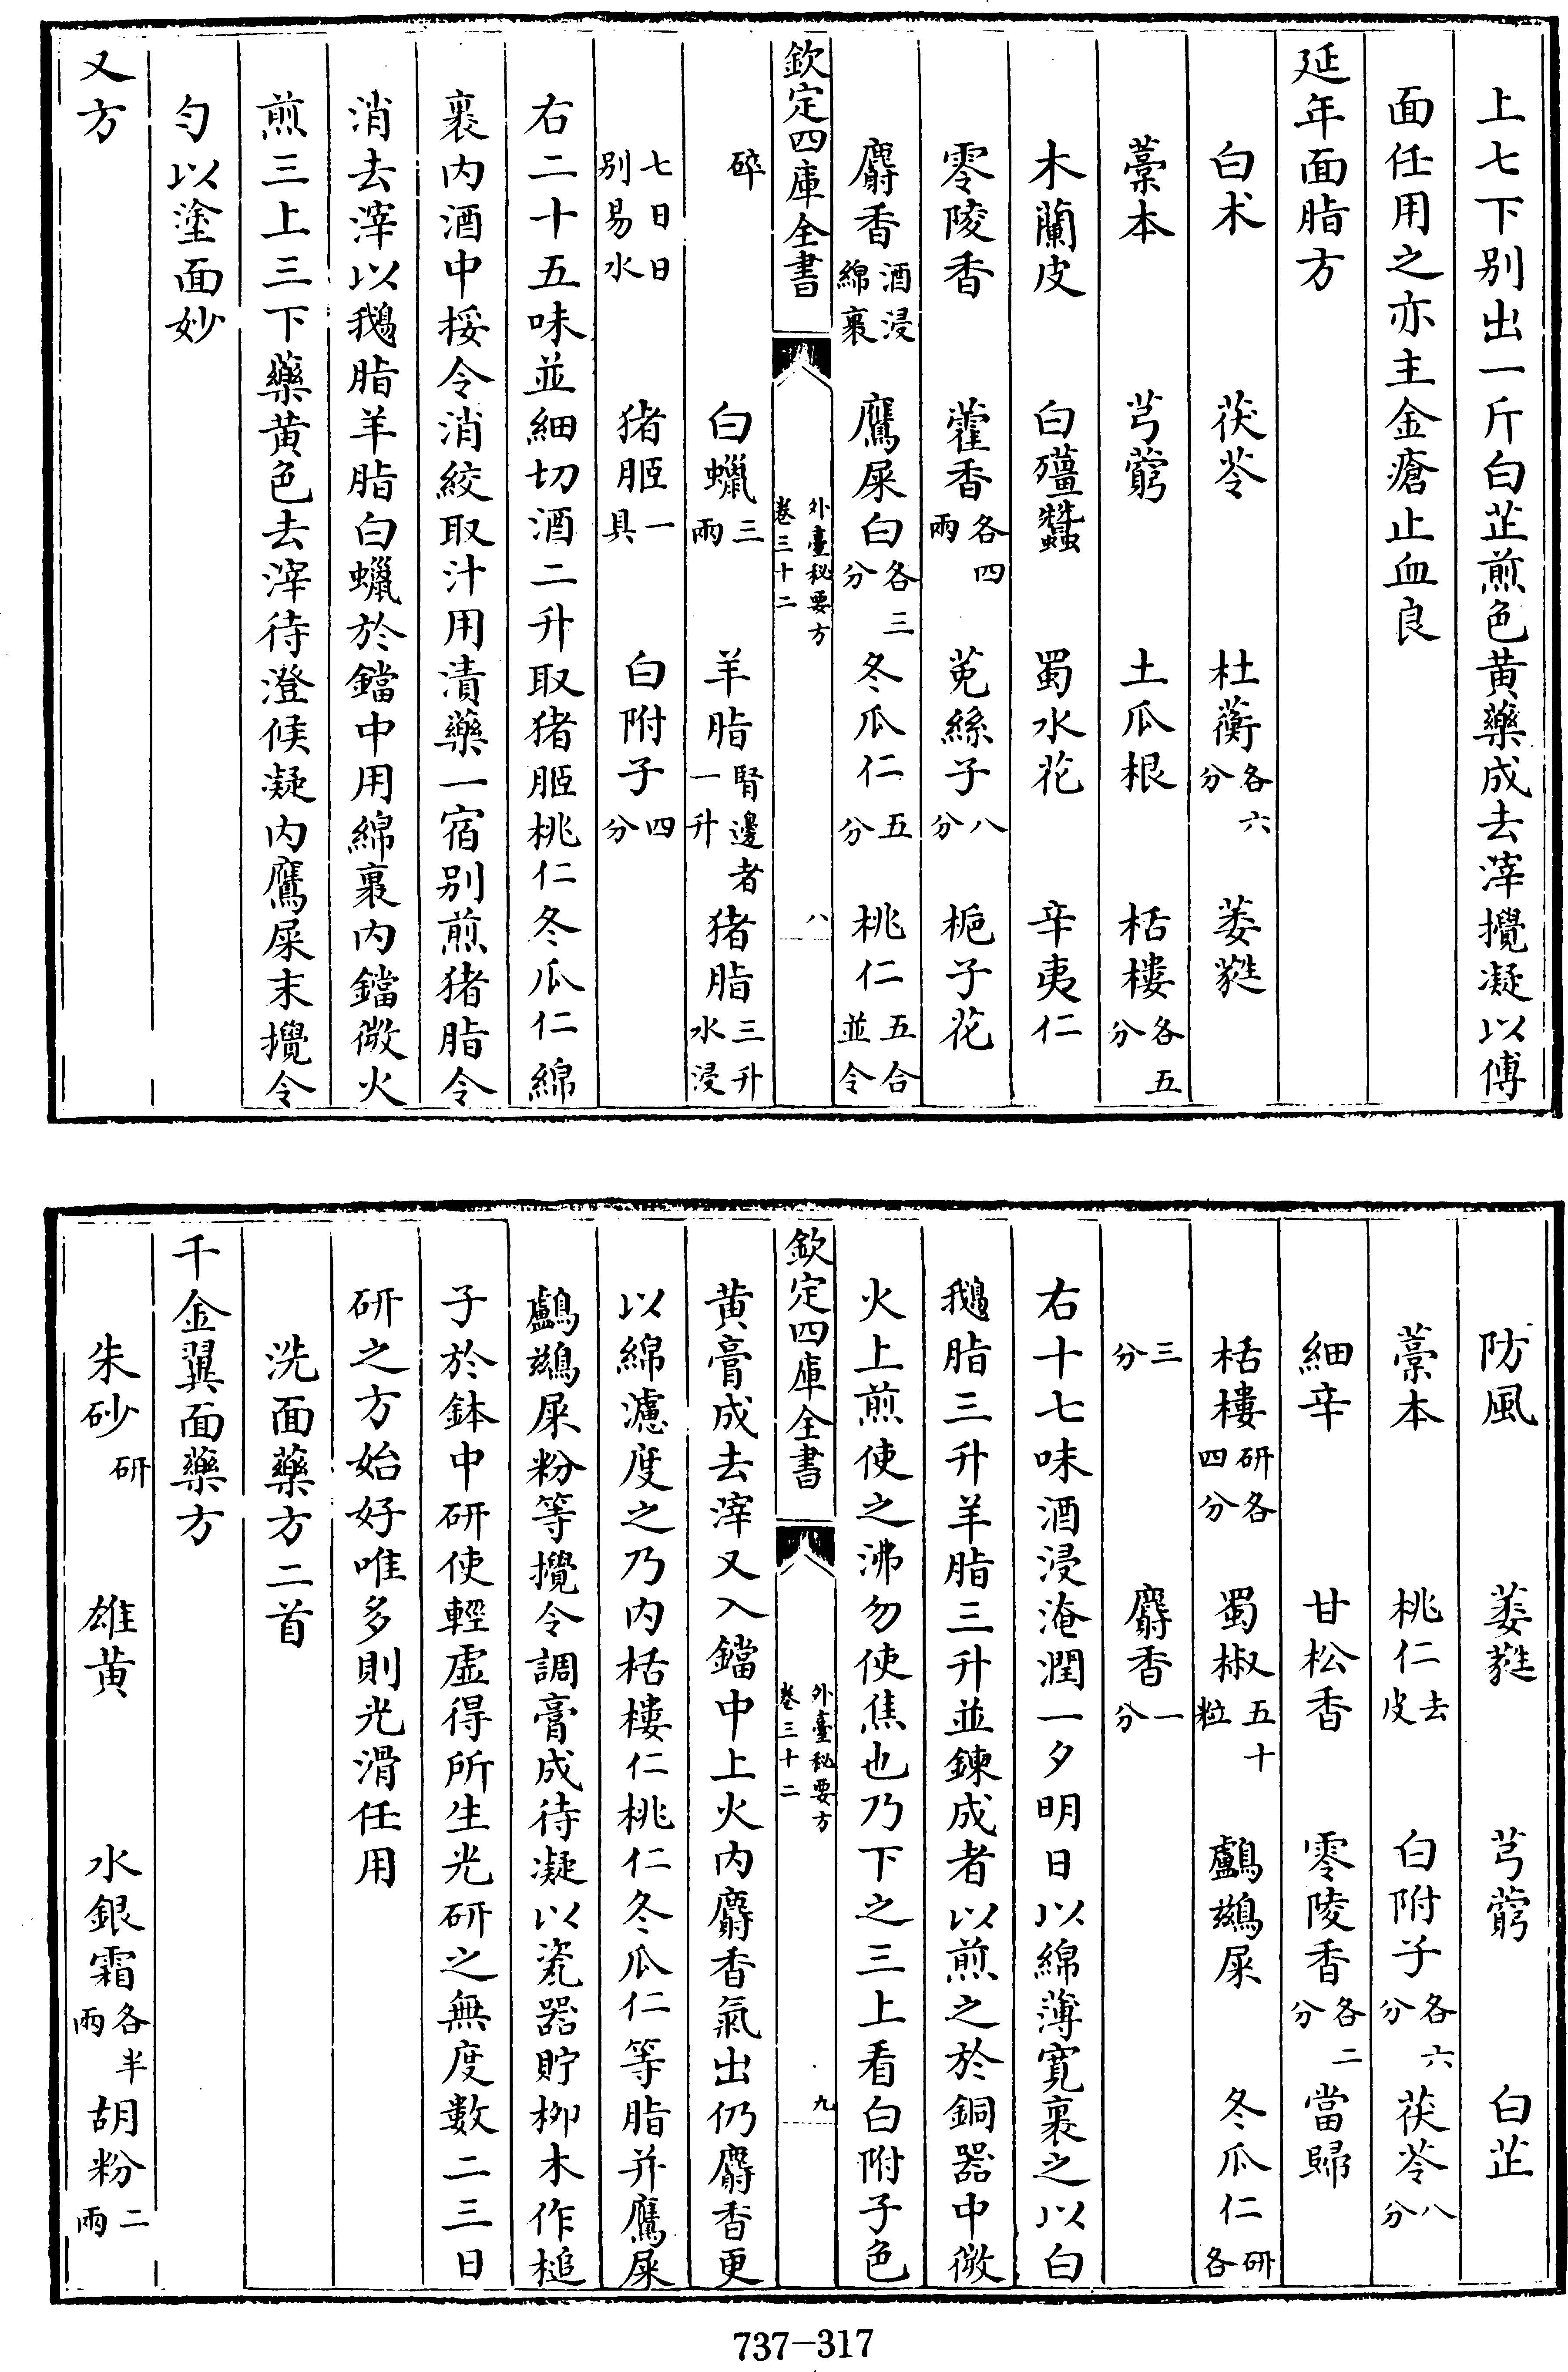 上七下别出一斤白芷煎色黄藥成去滓攪凝以傅
面任用之亦主金瘡止血良
延年面脂方
白术 茯苓 杜蘅各六分 萎蕤
藁本 芎藭 土瓜根 栝樓各五分
木蘭皮 白殭蠶 蜀水花 辛夷仁
零陵香 藿香各四兩 菟絲子八分 梔子花
麝香酒浸綿裹 鷹屎白各三分 冬瓜仁五分 桃仁五合並令
欽定四庫全書 外臺秘要方卷三十二 八
碎 白蠟三兩 羊脂腎邊者一升 猪脂三升水浸
七日日别易水 猪脏一具 白附子四分
右二十五味並細切酒二升取猪脏桃仁冬瓜仁綿
裹内酒中挼令消絞取汁用漬藥一宿别煎猪脂令
消去滓以鵝脂羊脂白蠟於鐺中用綿裹内鐺微火
煎三上三下藥黄色去滓待澄候凝内鷹屎末攪令
勻以塗面妙
又方
防風 萎蕤 芎藭 白芷
藁本 桃仁去皮 白附子各六分 茯苓八分
細辛 甘松香 零陵香各二分 當歸
栝樓研各四分 蜀椒五十粒 鸕鷀屎 冬瓜仁研各
三分 麝香一分
右十七味酒浸淹潤一夕明日以綿薄寬裹之以白
鵝脂三升羊脂三升並鍊成者以煎之於銅器中微
火上煎使之沸勿使焦也乃下之三上看白附子色
欽定四庫全書 外臺秘要方卷三十二 九
黄膏成去滓又入鐺中上火内麝香氣出仍麝香更
以綿濾度之乃内栝樓仁桃仁冬瓜仁等脂并鷹屎
鸕鷀屎粉等攪令調膏成待凝以瓷器貯柳木作槌
子於鉢中研使輕虚得所生光研之無度數二三日
研之方始好唯多則光滑任用
洗面藥方二首
千金翼面藥方
朱砂研 雄黄 水銀霜各半兩 胡粉二兩
737-317